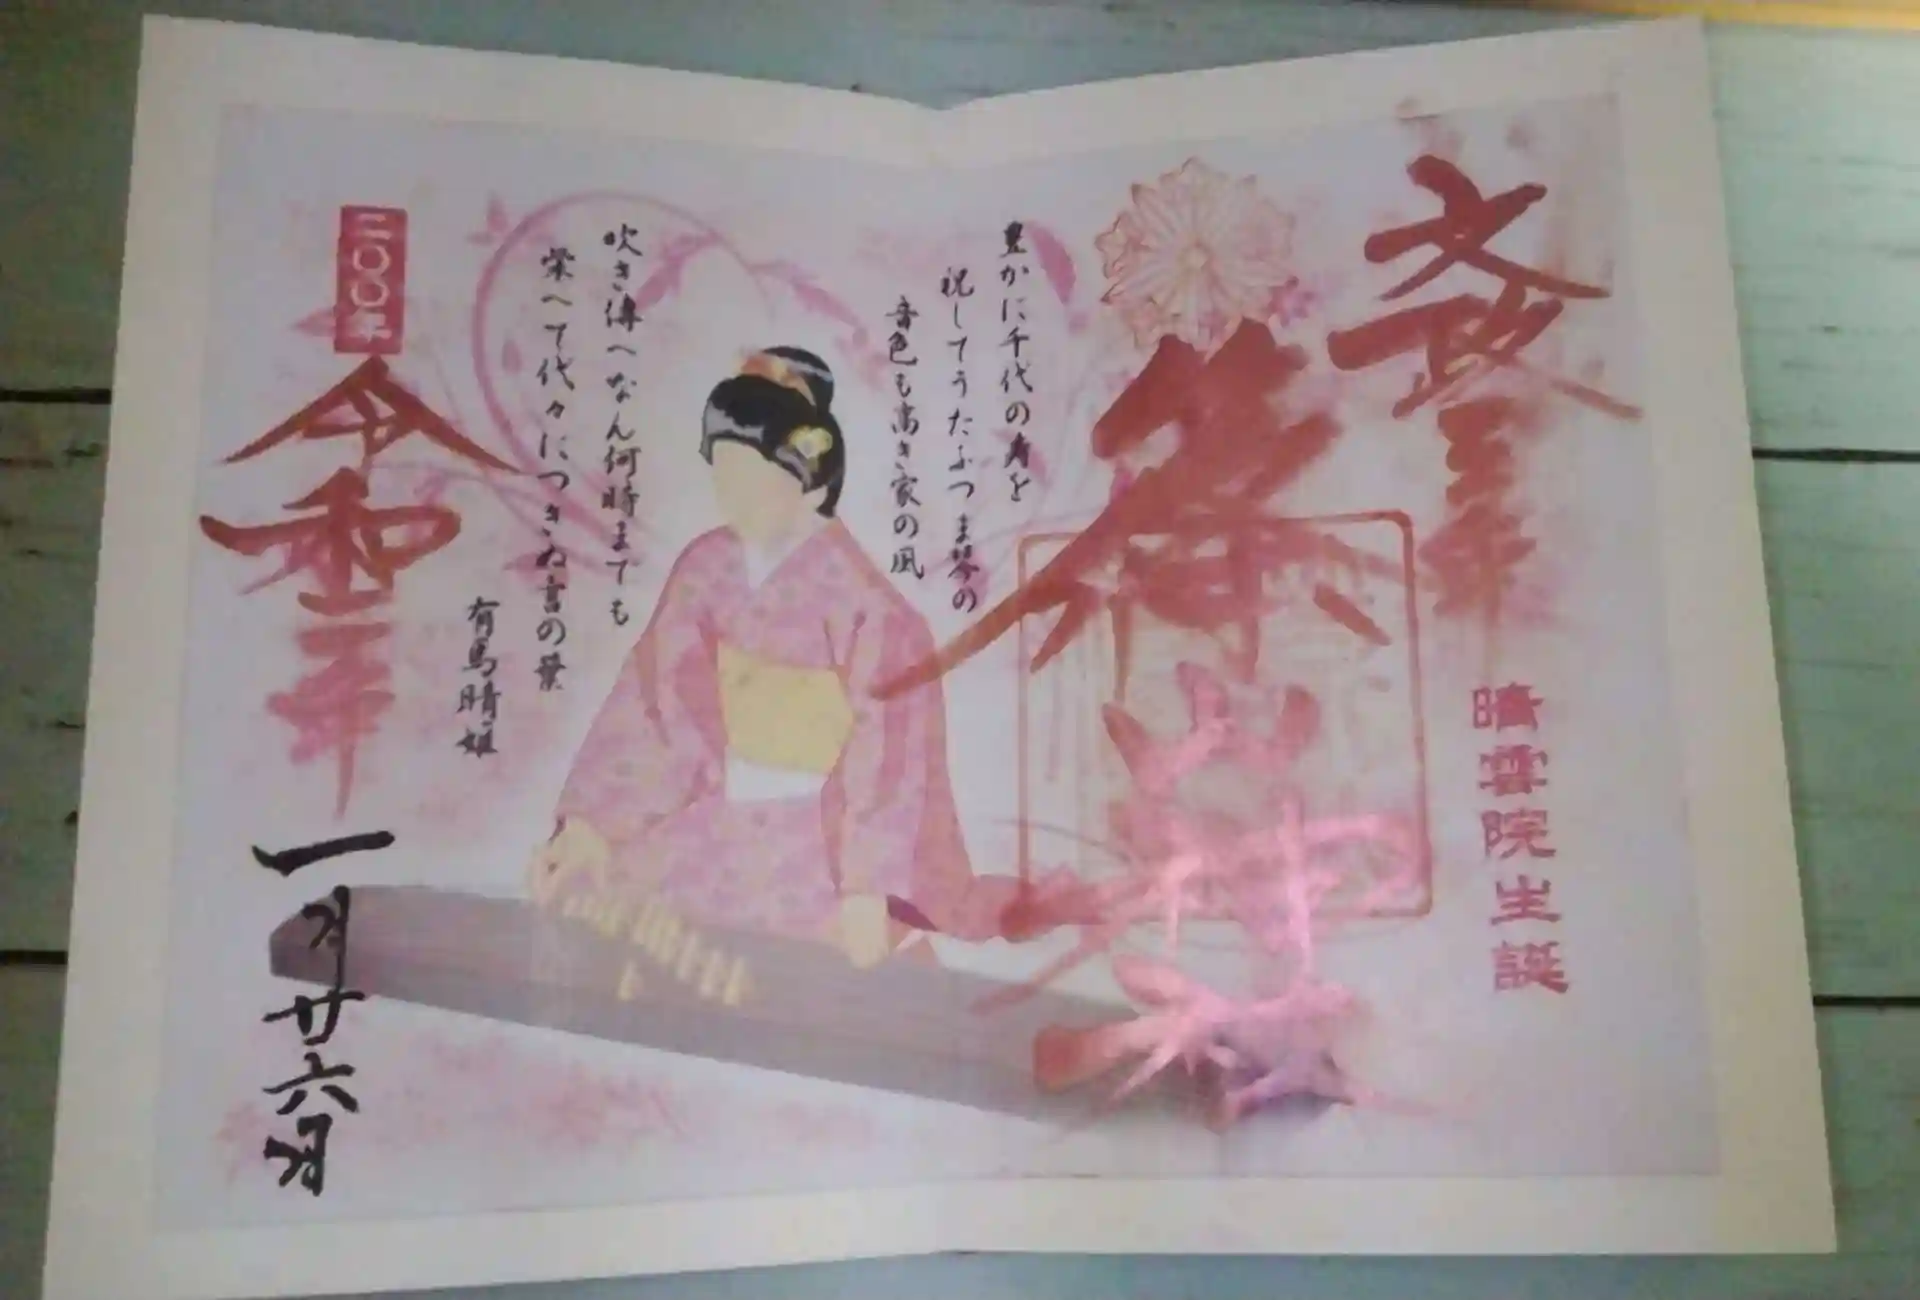 文政三年
晴雲院生誕
豊かに千代の寿を
祝してうたふつま琴の
音色も高き家の風
吹き傳へなん何時までも
栄へて代々につきぬ言の葉
有馬晴姫
二〇〇年
令和二年
一月廿六日